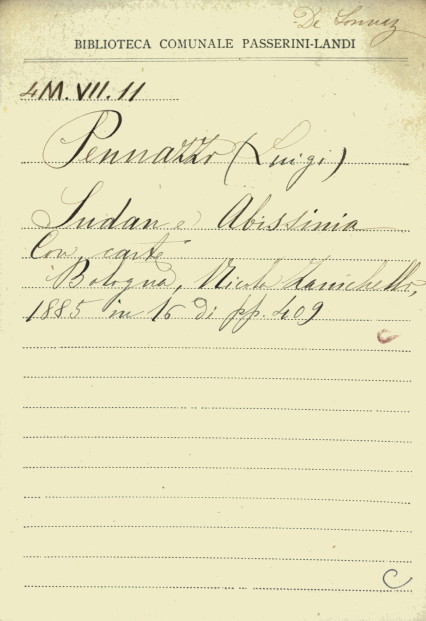 De
BIBLIOTECA COMUNALE PASSERINI-LANDI
4M.VII.11
Pennazzo (Luigi)
Sudan e Abissinia
Con carte
Bologna, Nicola Zanichelli,
1885 in 16 di pp. 409
C